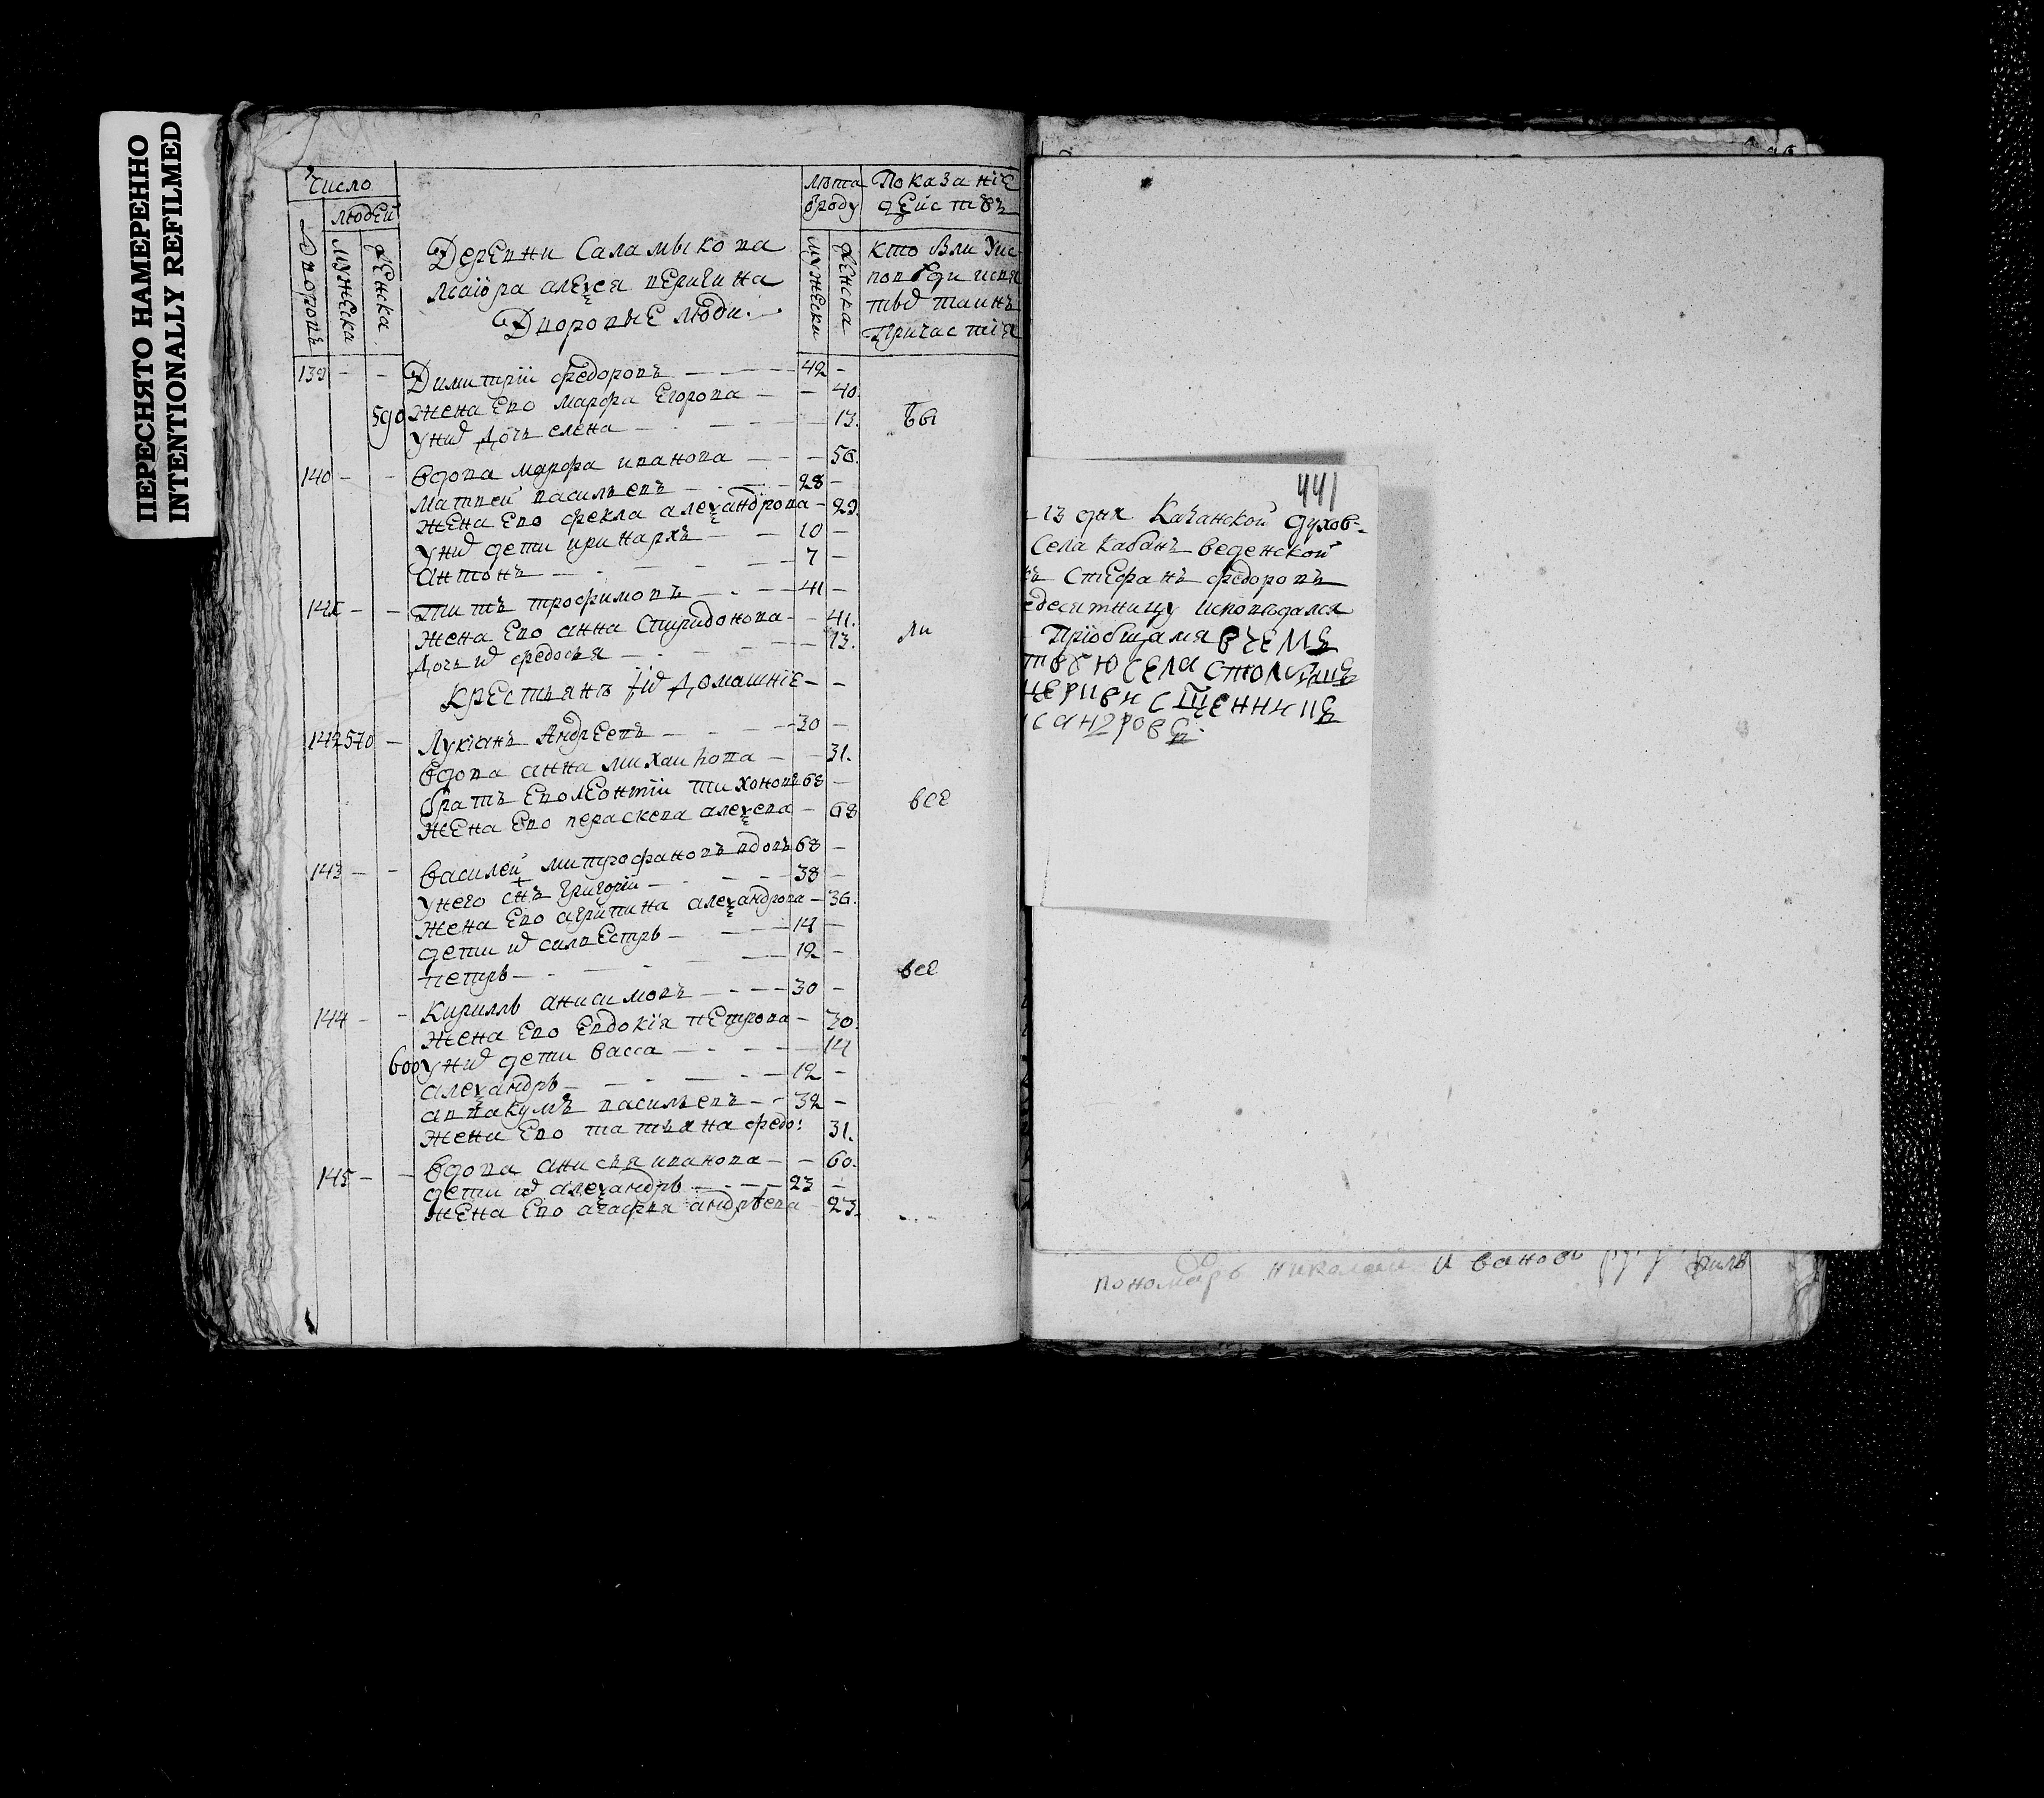 ПЕРЕСНЯТО НАМЕРЕННО
INTENTIONALLY REFILMED
Число
людей
Дворовъ
мужеска
женска
Деревни Саламыкова
маіора алеѯея
Дворовые люди
лѣта
ѿроду
мужеска
женска
Показаніе
дейстѡъ
кто былъ у ис
поведи и свя
тыѯ таинъ
Причастія
139 - - Димитрій федоровъ - 42 -
жена ево марфа егорова - - 40.
590 у ниѯ дочь елена - 13.
Бы
140 - - вдова марфа иванова - - 56.
матвей васильевъ - 28 -
жена ево фекла алеѯандрова - 29
у ниѯ дети иринархъ - 10 -
антонъ - 7 -
141 - - титъ трофимовъ - 41 -
жена ево анна спиридонова - - 41.
дочь иѯ федосья - 13.
ли
крестьянъ иѯ домашніе - -
142 570 - Лукіанъ Андреевъ - 30 -
вдова анна михаилова - - 31.
братъ ево леонтій тихоновъ 68 -
жена ево параскева алеѯева - 68
все
143 - - василей митрофановъ вдовъ 68 -
у него сн҃ъ григорій - 38 -
жена ево агрипина алеѯандрова - 36.
дети иѯ силвестръ - 14 -
петръ - 12 -
все
144 - - Кириллъ анисимовъ - 30 -
жена ево евдокія петрова - 30.
600 у ниѯ дети васса - 14
алеѯандръ - 12 -
аввакумъ васильевъ - 32 -
жена ево татьяна федо: 31.
145 - - вдова анисья иванова - - 60.
дети иѯ алеѯандръ - 23 -
жена ево агафья андрѣева - 23.
441
13 дня Казанской духов-
села Кабанъ веденской
Стефанъ федоровъ
едесятницу исповедался
Пріобщался в чемъ
села
сщенникъ
пономарь николаи иванов